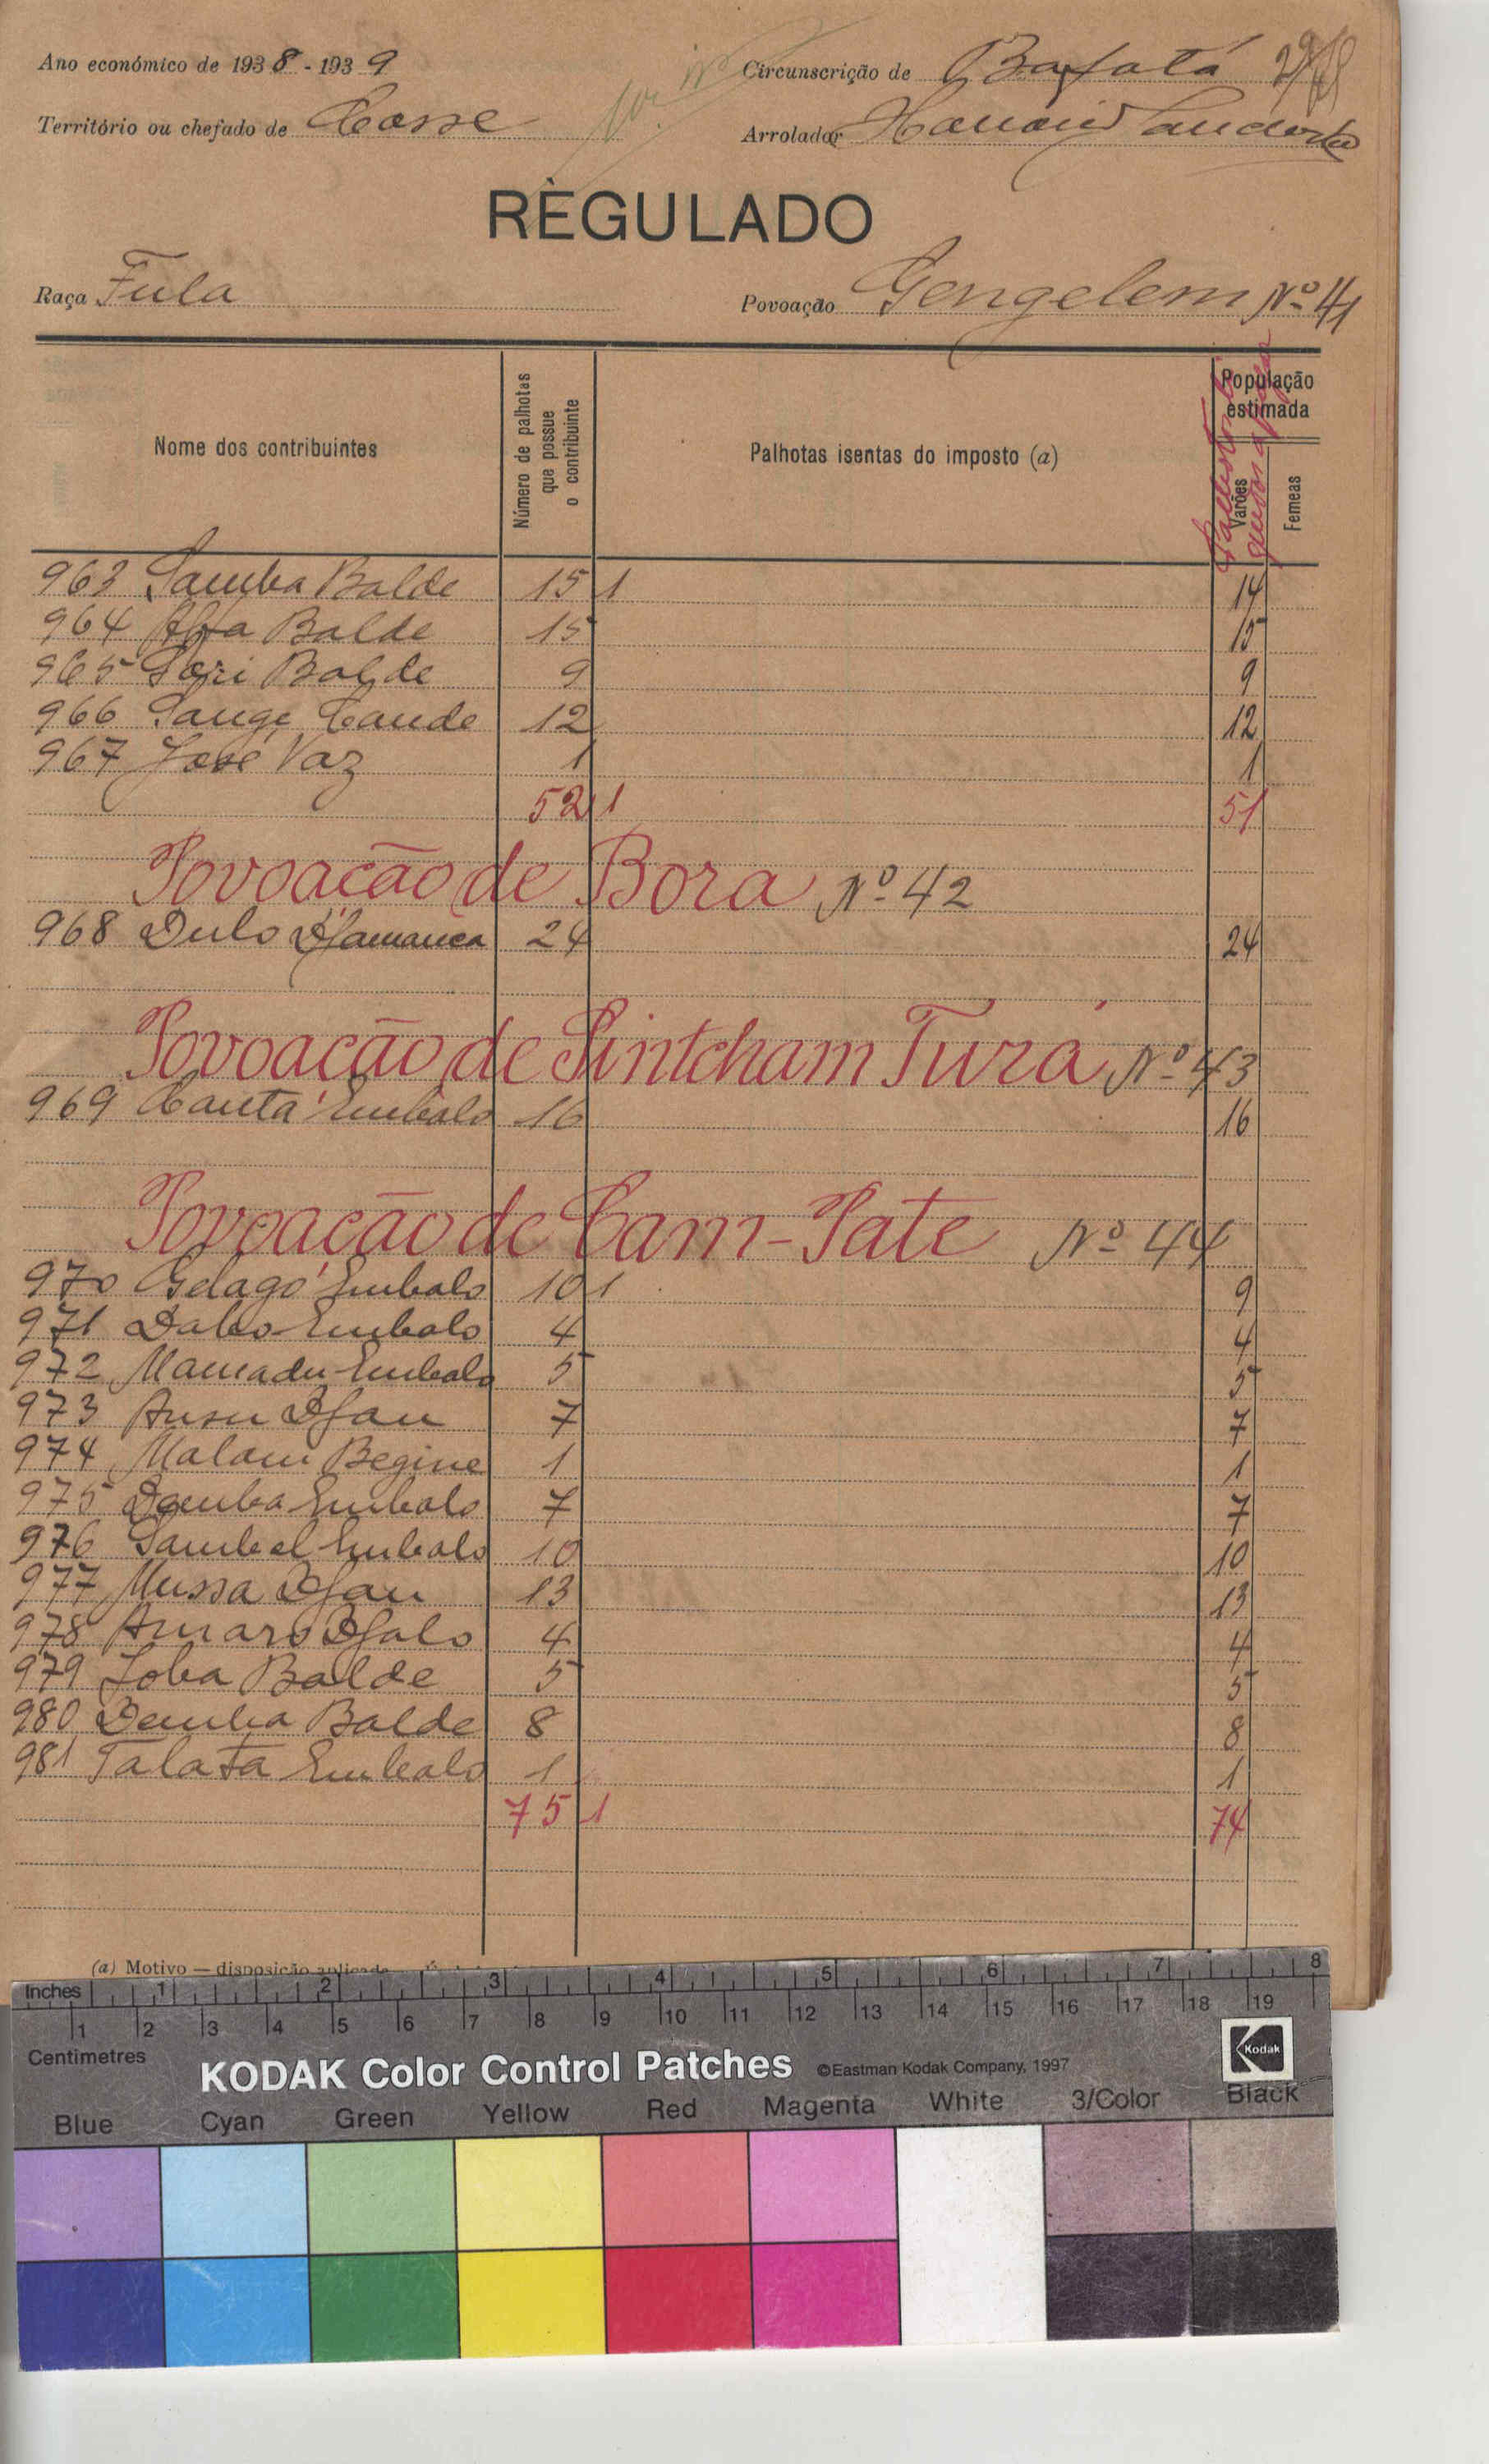 Ano económico de 1938-1939
Circunscrição de Bafatá
Território ou chefado de Cosse
Arrolador
REGULADO
Raça Fula
Povoação Gengelem Nº 41
Nome dos contribuintes
Número de palhotas que possue o contribuinte
Palhotas isentas do imposto (a)
População estimada
Varões
Femeas
963 Samba Balde 15 1 14
964 Alfa Balde 15 15
965 Sori Balde 9 9
966 Sauge Cande 12 12
967 José Vaz 1 1
52 1 51
Povoação de Bora Nº 42
968 Dulo Djamanca 24 24
Povoação de Sintcham Turá Nº 43
969 Cauta Embalo 16 16
Povoação de Cam-Pate Nº 44
970 Gelago Embalo 10 1 9
971 Embalo 4 4
972 Mamadu Embalo 5 5
973 Ansu Djau 7 7
974 Malam Begine 1 1
975 Demba Embalo 7 7
976 Sambel Embalo 10 10
977 Mussa Djau 13 13
978 Amaro Djalo 4 4
979 Joba Balde 5 5
980 Demba Balde 8 8
981 Talata Embalo 1 1
75 1 74
(a) Motivo — disposição aplicada
Inches 1 2 3 4 5 6 7 8
1 2 3 4 5 6 7 8 9 10 11 12 13 14 15 16 17 18 19
Centimetres
KODAK Color Control Patches ©Eastman Kodak Company, 1997
Kodak
Blue Cyan Green Yellow Red Magenta White 3/Color Black